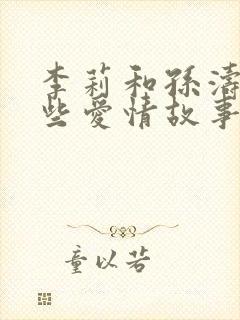 李莉和孫濤
些愛情故事
童以若